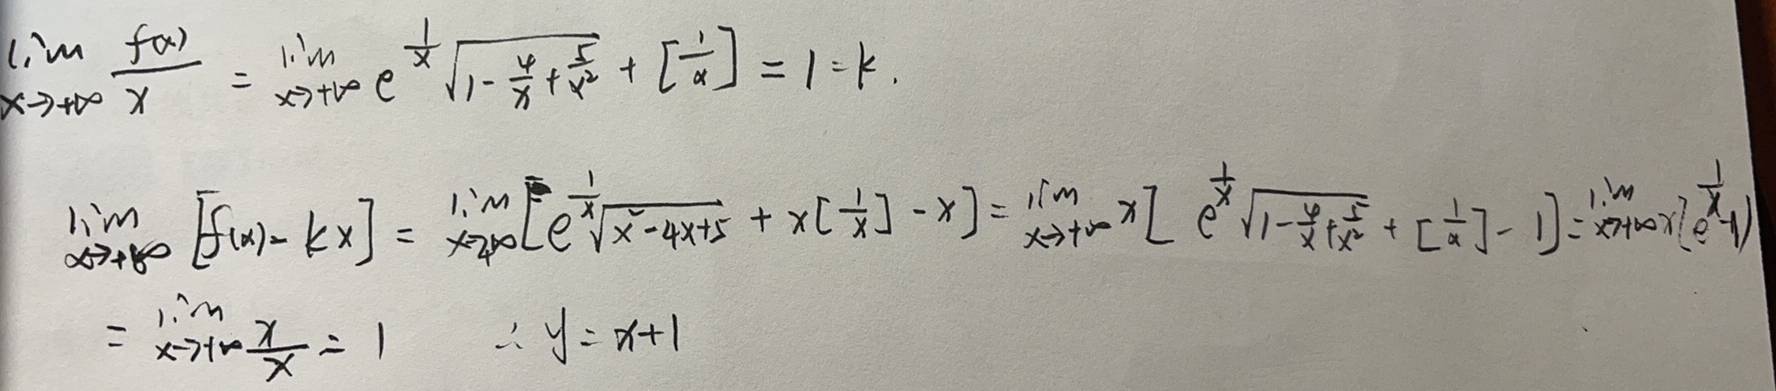 lim_{x→+∞} f(x)/x = lim_{x→+∞} e^{1/x} √(1-4/x+5/x²) + [1/x] = 1 = k.
lim_{x→+∞} [f(x)-kx] = lim_{x→+∞} [e^{1/x} √(x²-4x+5) + x[1/x] - x] = lim_{x→+∞} x[e^{1/x} √(1-4/x+5/x²) + [1/x] - 1] = lim_{x→+∞} x[e^{1/x}-1]
= lim_{x→+∞} x/x = 1 ∴ y = x+1